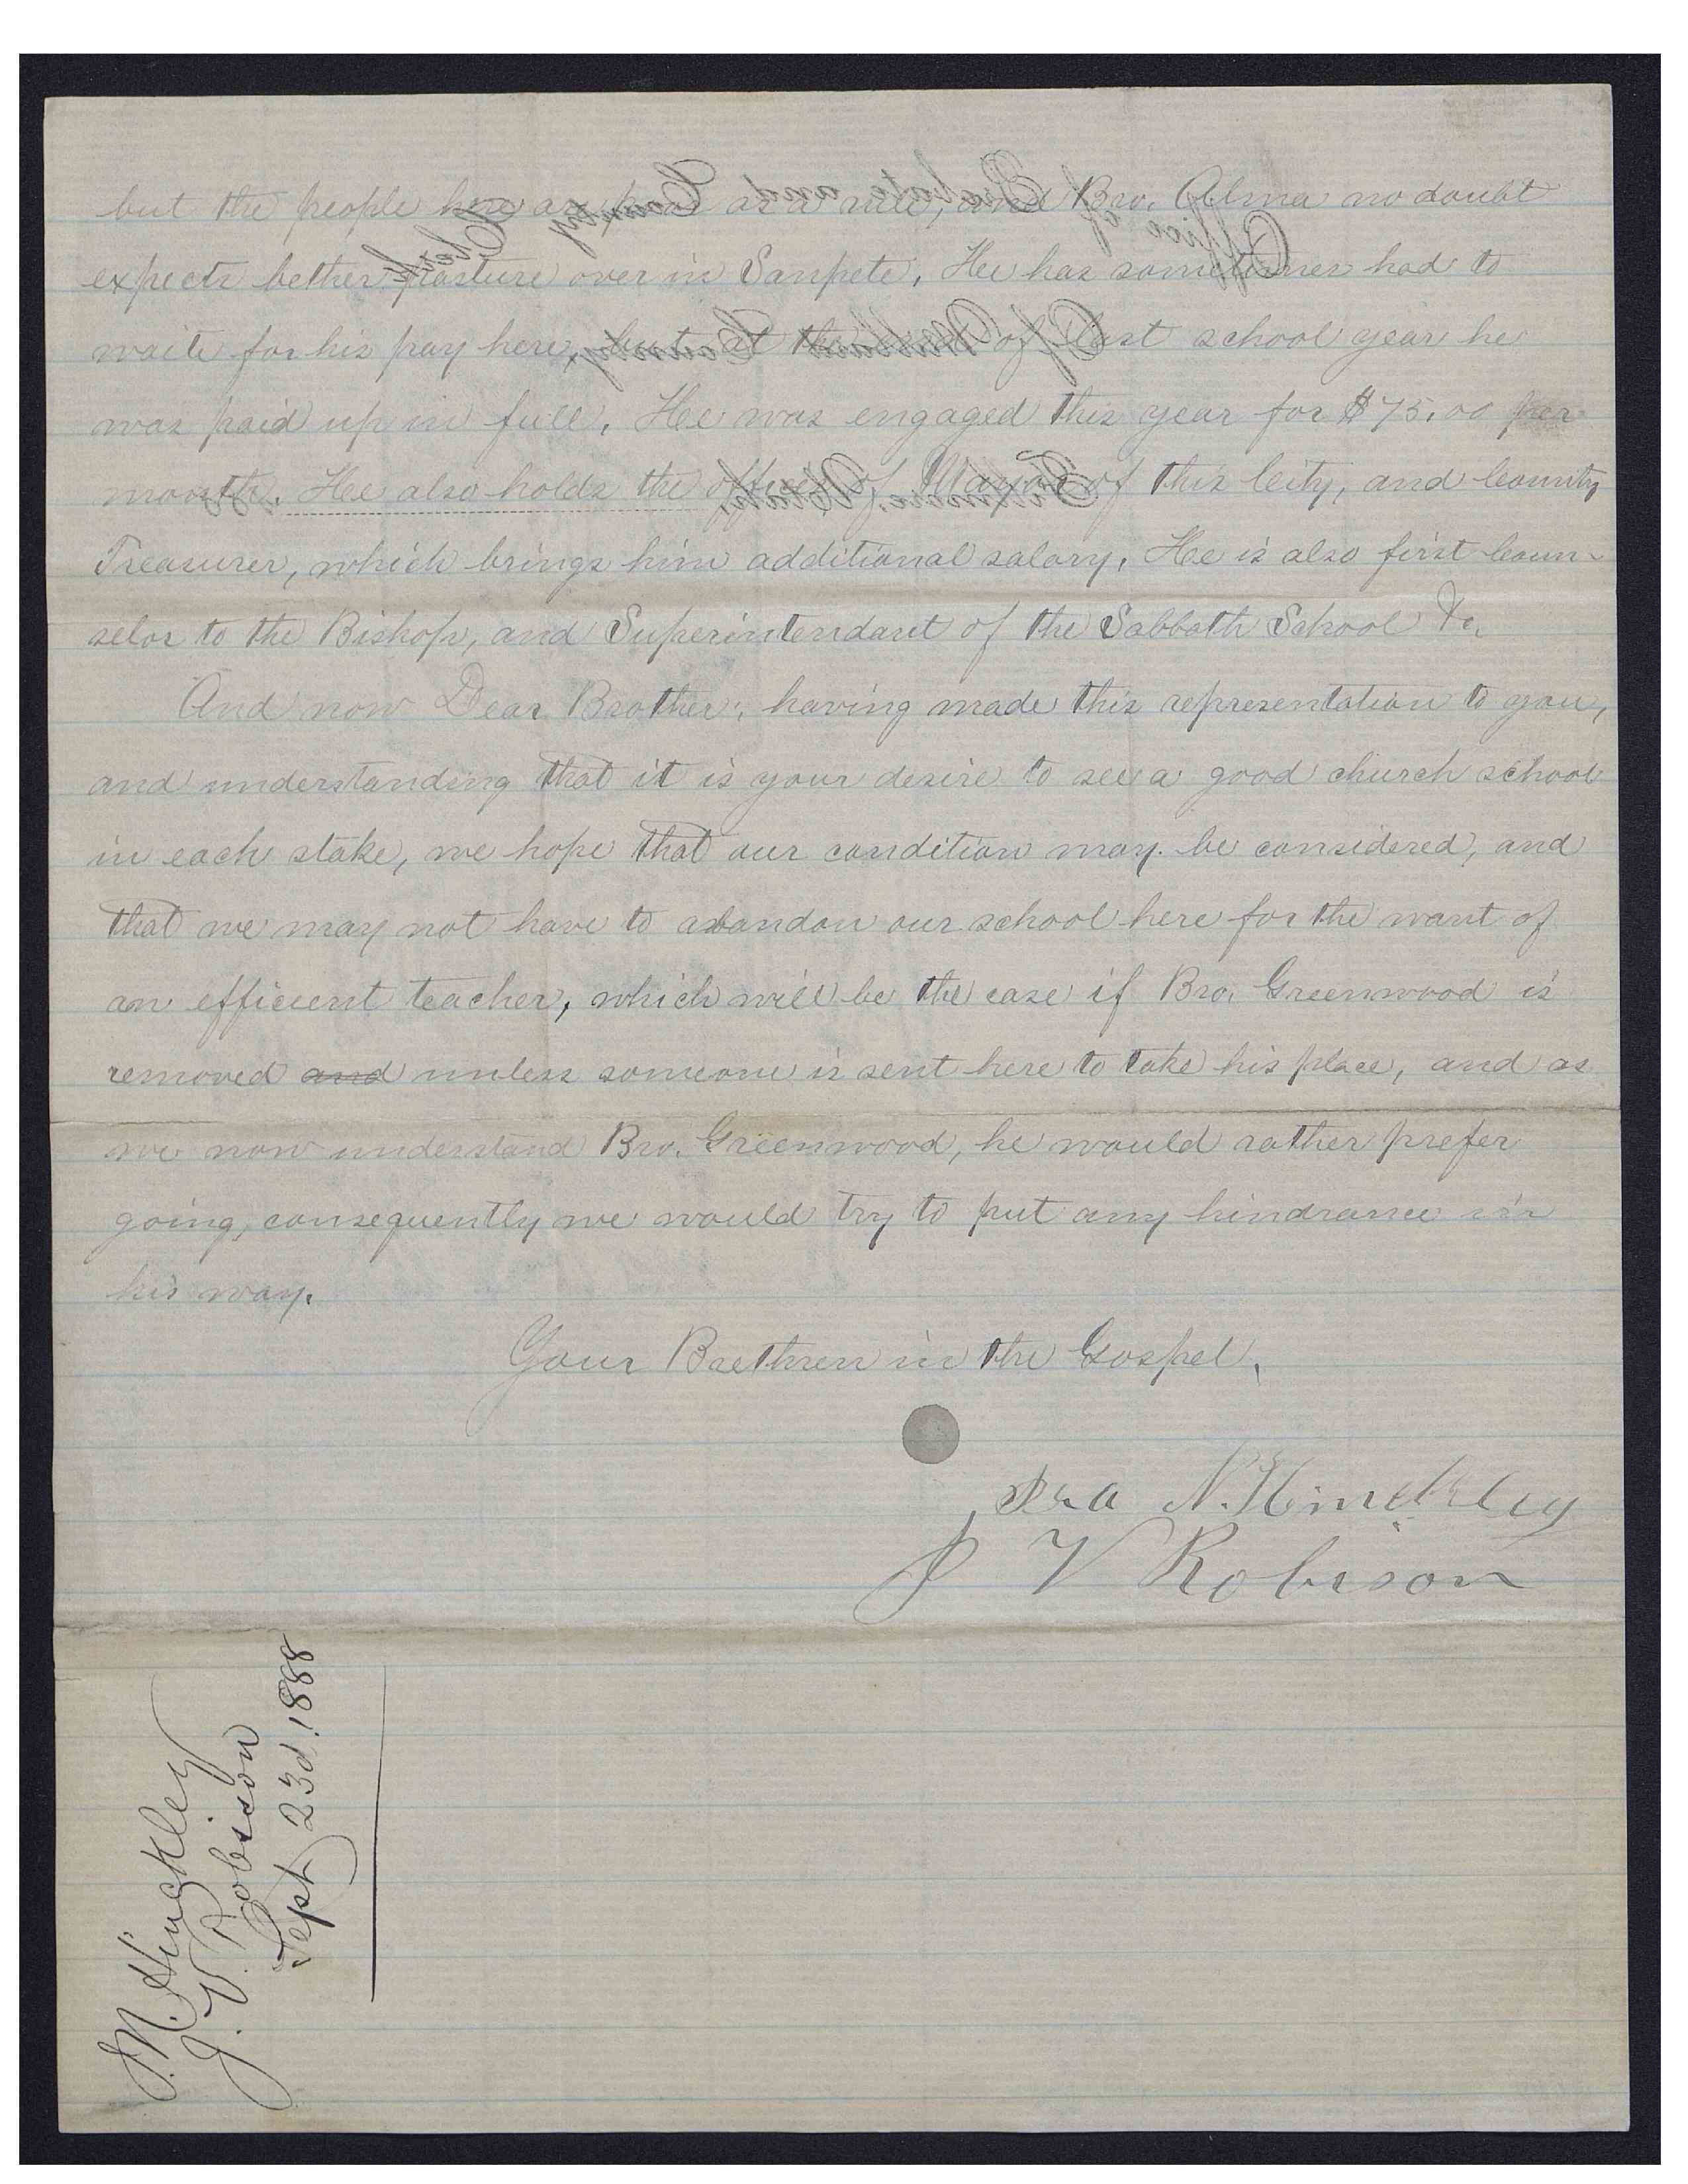 but the people here are poor as a rule, and Bro. Alma no doubt
expects bether pasture over in Sanpete. He has sometimes had to
waite for his pay here, but at the end of last school year he
was paid up in full. He was engaged this year for $75.00 per
month. He also holds the office of Mayor of this City, and County
Treasurer, which brings him additional salary. He is also first Coun-
selor to the Bishop, and Superintendant of the Sabbath School &c.
And now Dear Brother, having made this representation to you,
and understanding that it is your desire to see a good church school
in each stake, we hope that our condition may be considered, and
that we may not have to abandon our school here for the want of
an efficient teacher, which will be the case if Bro. Greenwood is
removed and unless someone is sent here to take his place, and as
we now understand Bro. Greenwood, he would rather prefer
going, consequently we would try to put any hindrance in
his way.
Your Brethren in the Gospel,
Ira N. Hinckley
J V Robison
Hinckley
J. V. Robison
Sept 23d 1888
Office of Probate and County Clerk
Of Millard County,
Fillmore, Utah,
188